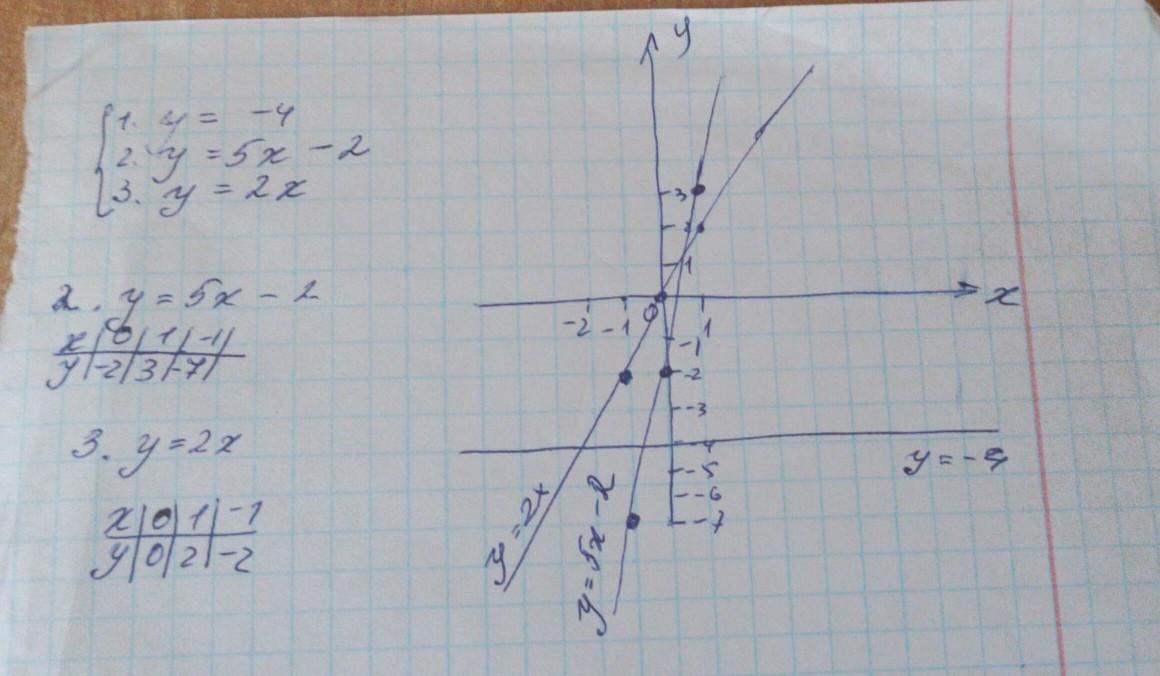 1. y = -4
2. y = 5x - 2
3. y = 2x
2. y = 5x - 2
x | 0 | 1 | -1 |
y | -2 | 3 | -7 |
3. y = 2x
x | 0 | 1 | -1
y | 0 | 2 | -2
y
3
2
1
-2 -1 0 1 x
-1
-2
-3
-4
-5
-6
-7
y = -4
y = 2x
y = 5x - 2